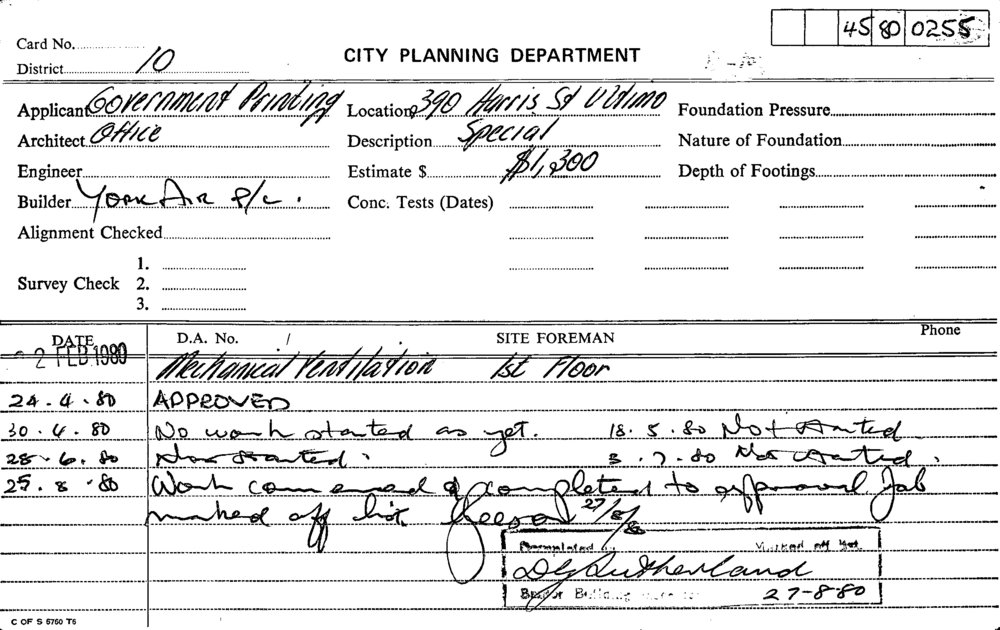 45 80 0255
Card No.
District 10
CITY PLANNING DEPARTMENT
Applicant Government Printing Location 390 Harris St Ultimo Foundation Pressure
Architect Office Description Special Nature of Foundation
Engineer Estimate $ $1,300 Depth of Footings
Builder York Air P/L. Conc. Tests (Dates)
Alignment Checked
1.
Survey Check 2.
3.
DATE D.A. No. / SITE FOREMAN Phone
2 FEB 1980 Mechanical Ventilation 1st Floor
24.4.80 APPROVED
30.4.80 No work started as yet. 18.5.80 Not Started
28.6.80 Not Started. 3.7.80 Not Started.
25.8.80 Work commenced & completed to approval Job
marked off list 27/8/80
Completed Marked off list
D G Sutherland
Building 27-8-80
C OF S 5760 T6